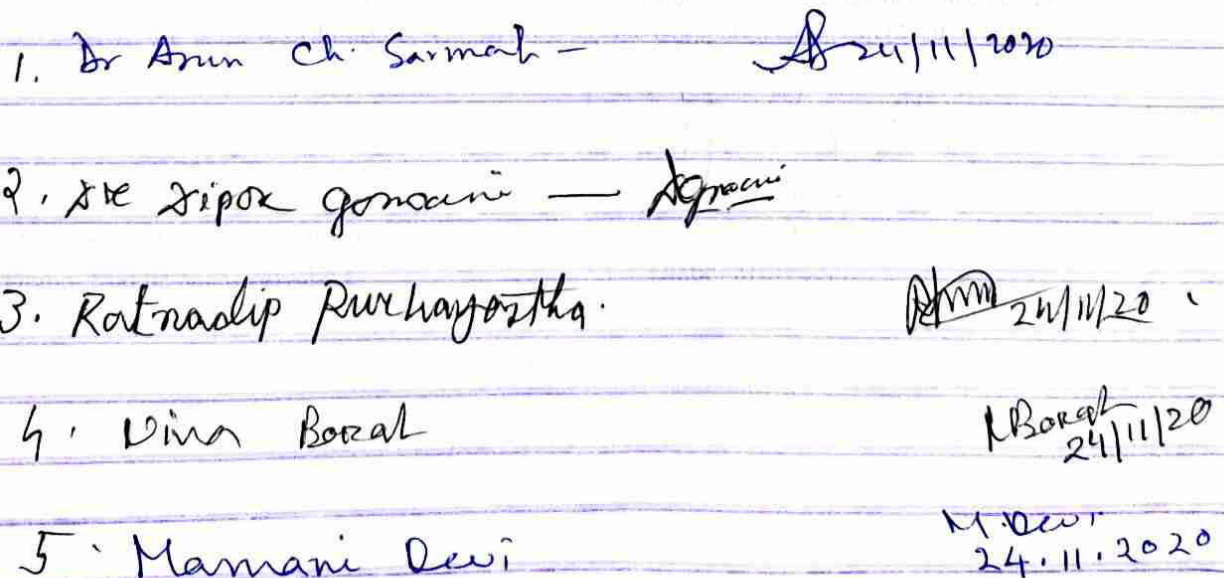 1. Dr Arun Ch. Sarmah - 24/11/2020
2. Dipok Goswami —
3. Ratnadip Purkayastha. 24/11/20
4. Dina Borah NBorah
24/11/20
5. Mamani Devi M. Devi
24.11.2020